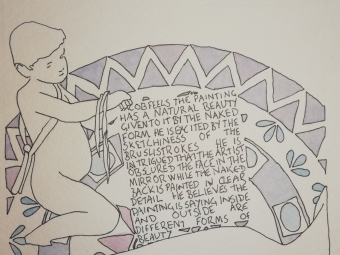 COB FEELS THE PAINTING
HAS A NATURAL BEAUTY
GIVEN TO IT BY THE NAKED
FORM. HE IS EXCITED BY THE
SKETCHINESS OF THE
BRUSHSTROKES. HE IS
INTRIGUED THAT THE ARTIST
OBSCURED THE FACE IN THE
MIRROR WHILE THE NAKED
BACK IS PAINTED IN CLEAR
DETAIL. HE BELIEVES THE
PAINTING IS SAYING INSIDE
AND OUTSIDE ARE
DIFFERENT FORMS OF
BEAUTY